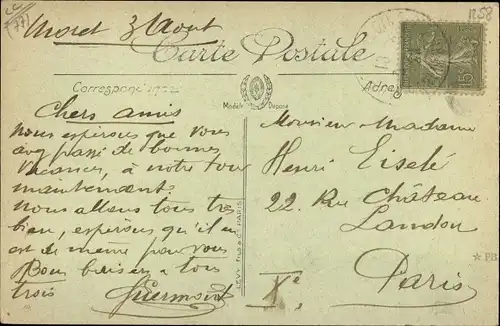 Moret 3 Aout
Carte Postale
Correspondance
Adres
Modèle Déposé
15
1258
77
Chers amis
Nous espérons que vous
avez passé de bonnes
vacances, à notre tour
maintenant.
Nous allons tous très
bien, espérons qu'il en
est de même pour vous
Bons baisers à tous
trois
Monsieur Madame
Henri Eiselé
22. Rue Château
Landon
Paris
X.
LEVY FILS & Cie PARIS